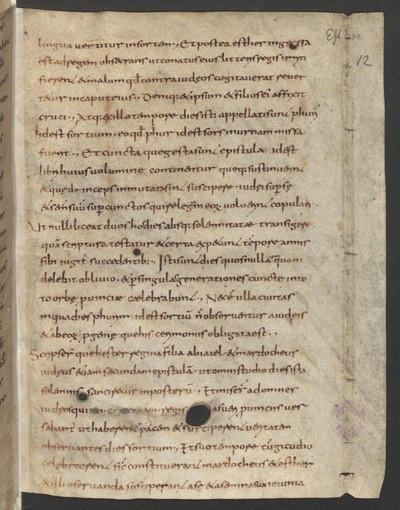 lingua vertitur in sortem. Et postea esther ingressa
est ad regem obsecrans ut conatus eius litteris regis irriti
fierent & malum qđ contra iudeos cogitaverat rever
teretur in caput eius. Deniq; & ipsum & filios ei affixit
cruci. Atq; ex illo tempore dies isti appellati sunt phurim
idest sortium eo qđ phur idest sors in urnam missa
fuerit. Et cuncta que gesta sunt epistulae idest
libri huius volumine continentur queq; sustinuerint
& que deinceps inmutata sint susceperunt iudei sup se
& semen suum & sup cunctos qui religioni eorum voluerint copulari.
Ut nulli liceat duos hos dies absq; solemnitate transigere
quam scriptura testatur & certa expetunt tempora annis
sibi iugiter succedentib; Isti sunt dies quos nulla umquam
delebit oblivio. & per singulas generationes cunctae in to
to orbe provinciae celebrabunt. Nec est ulla civitas
in qua dies phurim idest sortium non observentur a iudeis
& ab eorum progenie que his cerimoniis obligata est.
Scripserunt quoq; hester regina filia abiail & mardocheus
iudeus etiam secundam epistulam ut omni studio dies ista
solemnis sanciretur in posterum. Et miserunt ad omnes
iudeos qui in regis asueri provinciis ver
sabantur ut haberent pacem & susciperent veritatem
observantes dies sortium. Et suo tempore cum gaudio
celebrarent sicut constituerant mardocheus & esther
& illi observanda susceperunt a se & a semine suo ieiunia
12